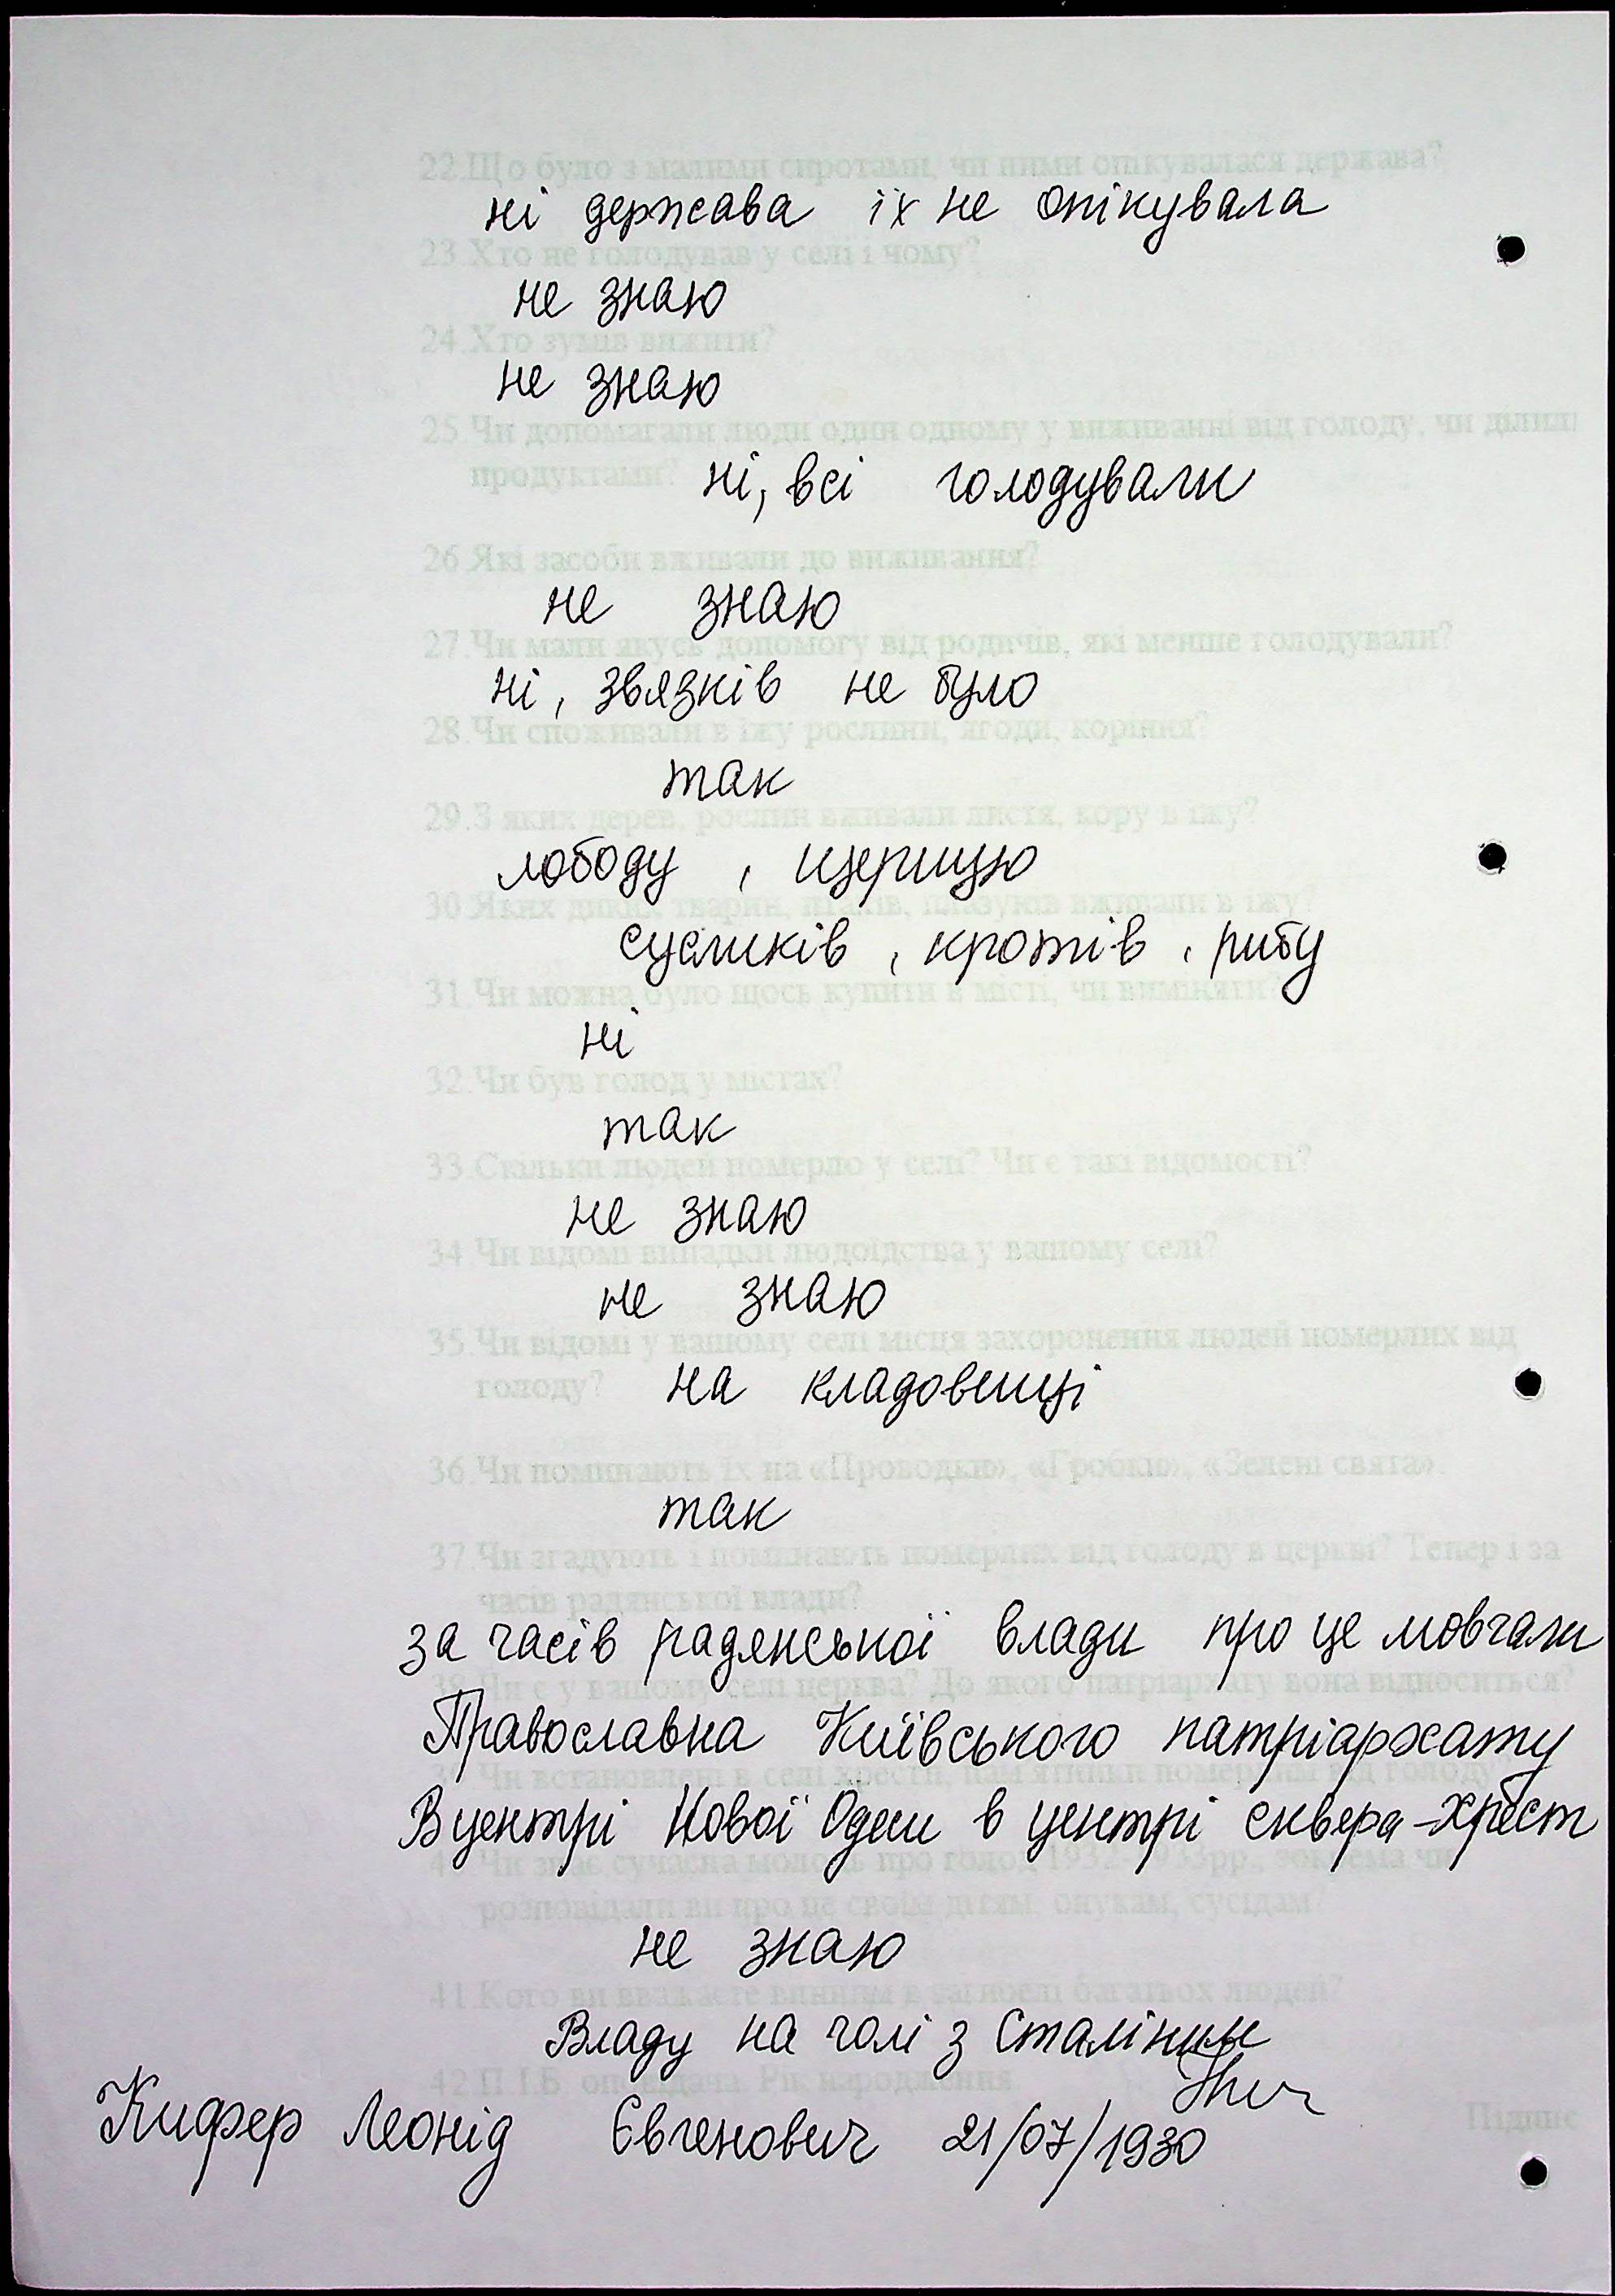 22.Що було з малими сиротами, чи ними опікувалася держава?
ні держава їх не опікувала
23.Хто не голодував у селі і чому?
не знаю
24.Хто зумів вижити?
не знаю
25.Чи допомагали люди один одному у виживанні від голоду, чи ділил
продуктами? ні, всі голодували
26.Які засоби вживали до виживання?
не знаю
27.Чи мали якусь допомогу від родичів, які менше голодували?
ні, звязків не було
28.Чи споживали в їжу рослини, ягоди, коріння?
так
29.З яких дерев, рослин вживали листя, кору в їжу?
лободу, щерицю
30.Яких диких тварин, птахів, плазунів вживали в їжу?
сусликів, кротів, рибу
31.Чи можна було щось купити в місті, чи виміняти?
ні
32.Чи був голод у містах?
так
33.Скільки людей померло у селі? Чи є такі відомості?
не знаю
34.Чи відомі випадки людоїдства у вашому селі?
не знаю
35.Чи відомі у вашому селі місця захоронення людей померлих від
голоду? на кладовищі
36.Чи поминають їх на «Проводки», «Гробки», «Зелені свята».
так
37.Чи згадують і поминають померлих від голоду в церкві? Тепер і за
часів радянської влади?
за часів радянської влади про це мовчали
38.Чи є у вашому селі церква? До якого патріархату вона відноситься?
Православна Київського патріархату
39.Чи встановлені в селі хрести, пам'ятники померлим від голоду
В центрі Нової Одеси в центрі сквера - хрест
40.Чи знає сучасна молодь про голод 1932-1933рр., зокрема чи
розповідали ви про це своїм дітям, онукам, сусідам?
не знаю
41.Кого ви вважаєте винним в загибелі багатьох людей?
Владу на чолі з Сталіним
42.П.І.Б оповідача. Рік народження
Підпис
Кифер Леонід Євгенович 21/07/1930